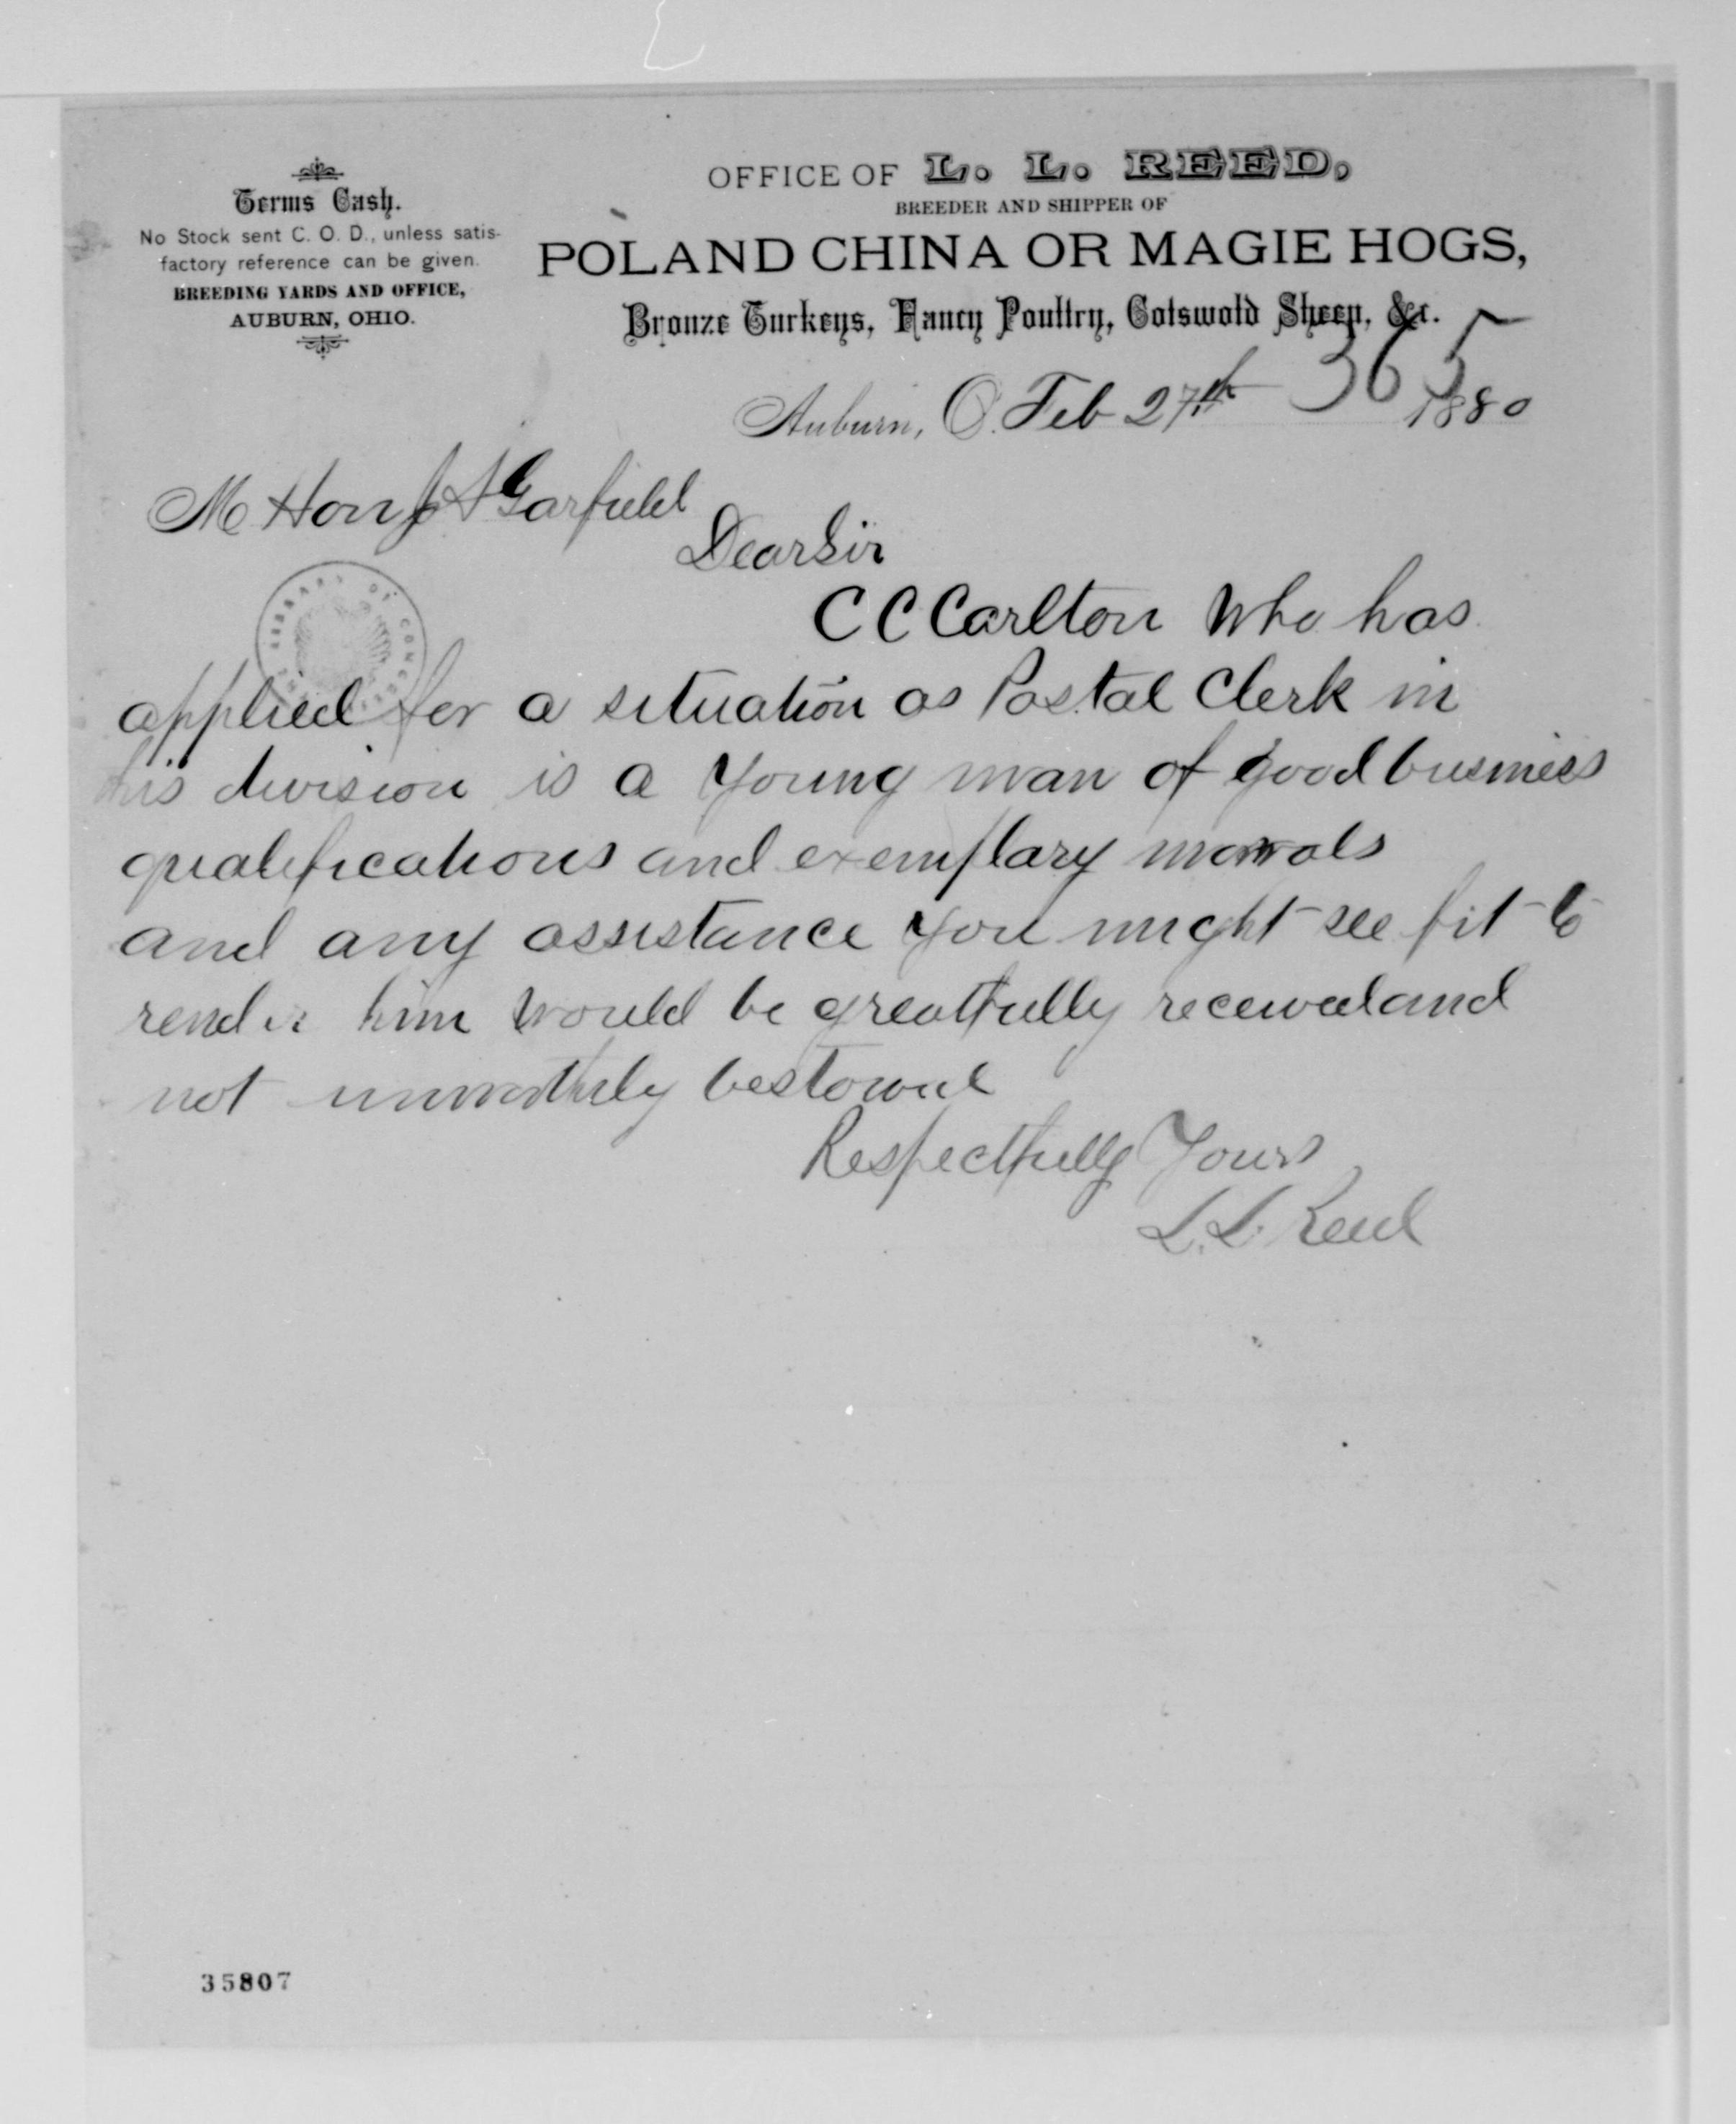 Terms Cash.
No Stock sent C. O. D., unless satis-
factory reference can be given.
BREEDING YARDS AND OFFICE,
AUBURN, OHIO.
OFFICE OF L. L. REED,
BREEDER AND SHIPPER OF
POLAND CHINA OR MAGIE HOGS,
Bronze Turkeys, Fancy Poultry, Cotswold Sheep, &c.
365
Auburn, O. Feb 27th 1880
M Hon J A Garfield
Dear Sir
C C Carlton Who has
applied for a situation as Postal Clerk in
this division is a Young man of good business
qualifications and exemplary morals
and any assistance you might see fit to
render him would be greatfully received and
not unworthily bestowed
Respectfully Yours
L. L. Reed
LIBRARY OF CONGRESS
35807